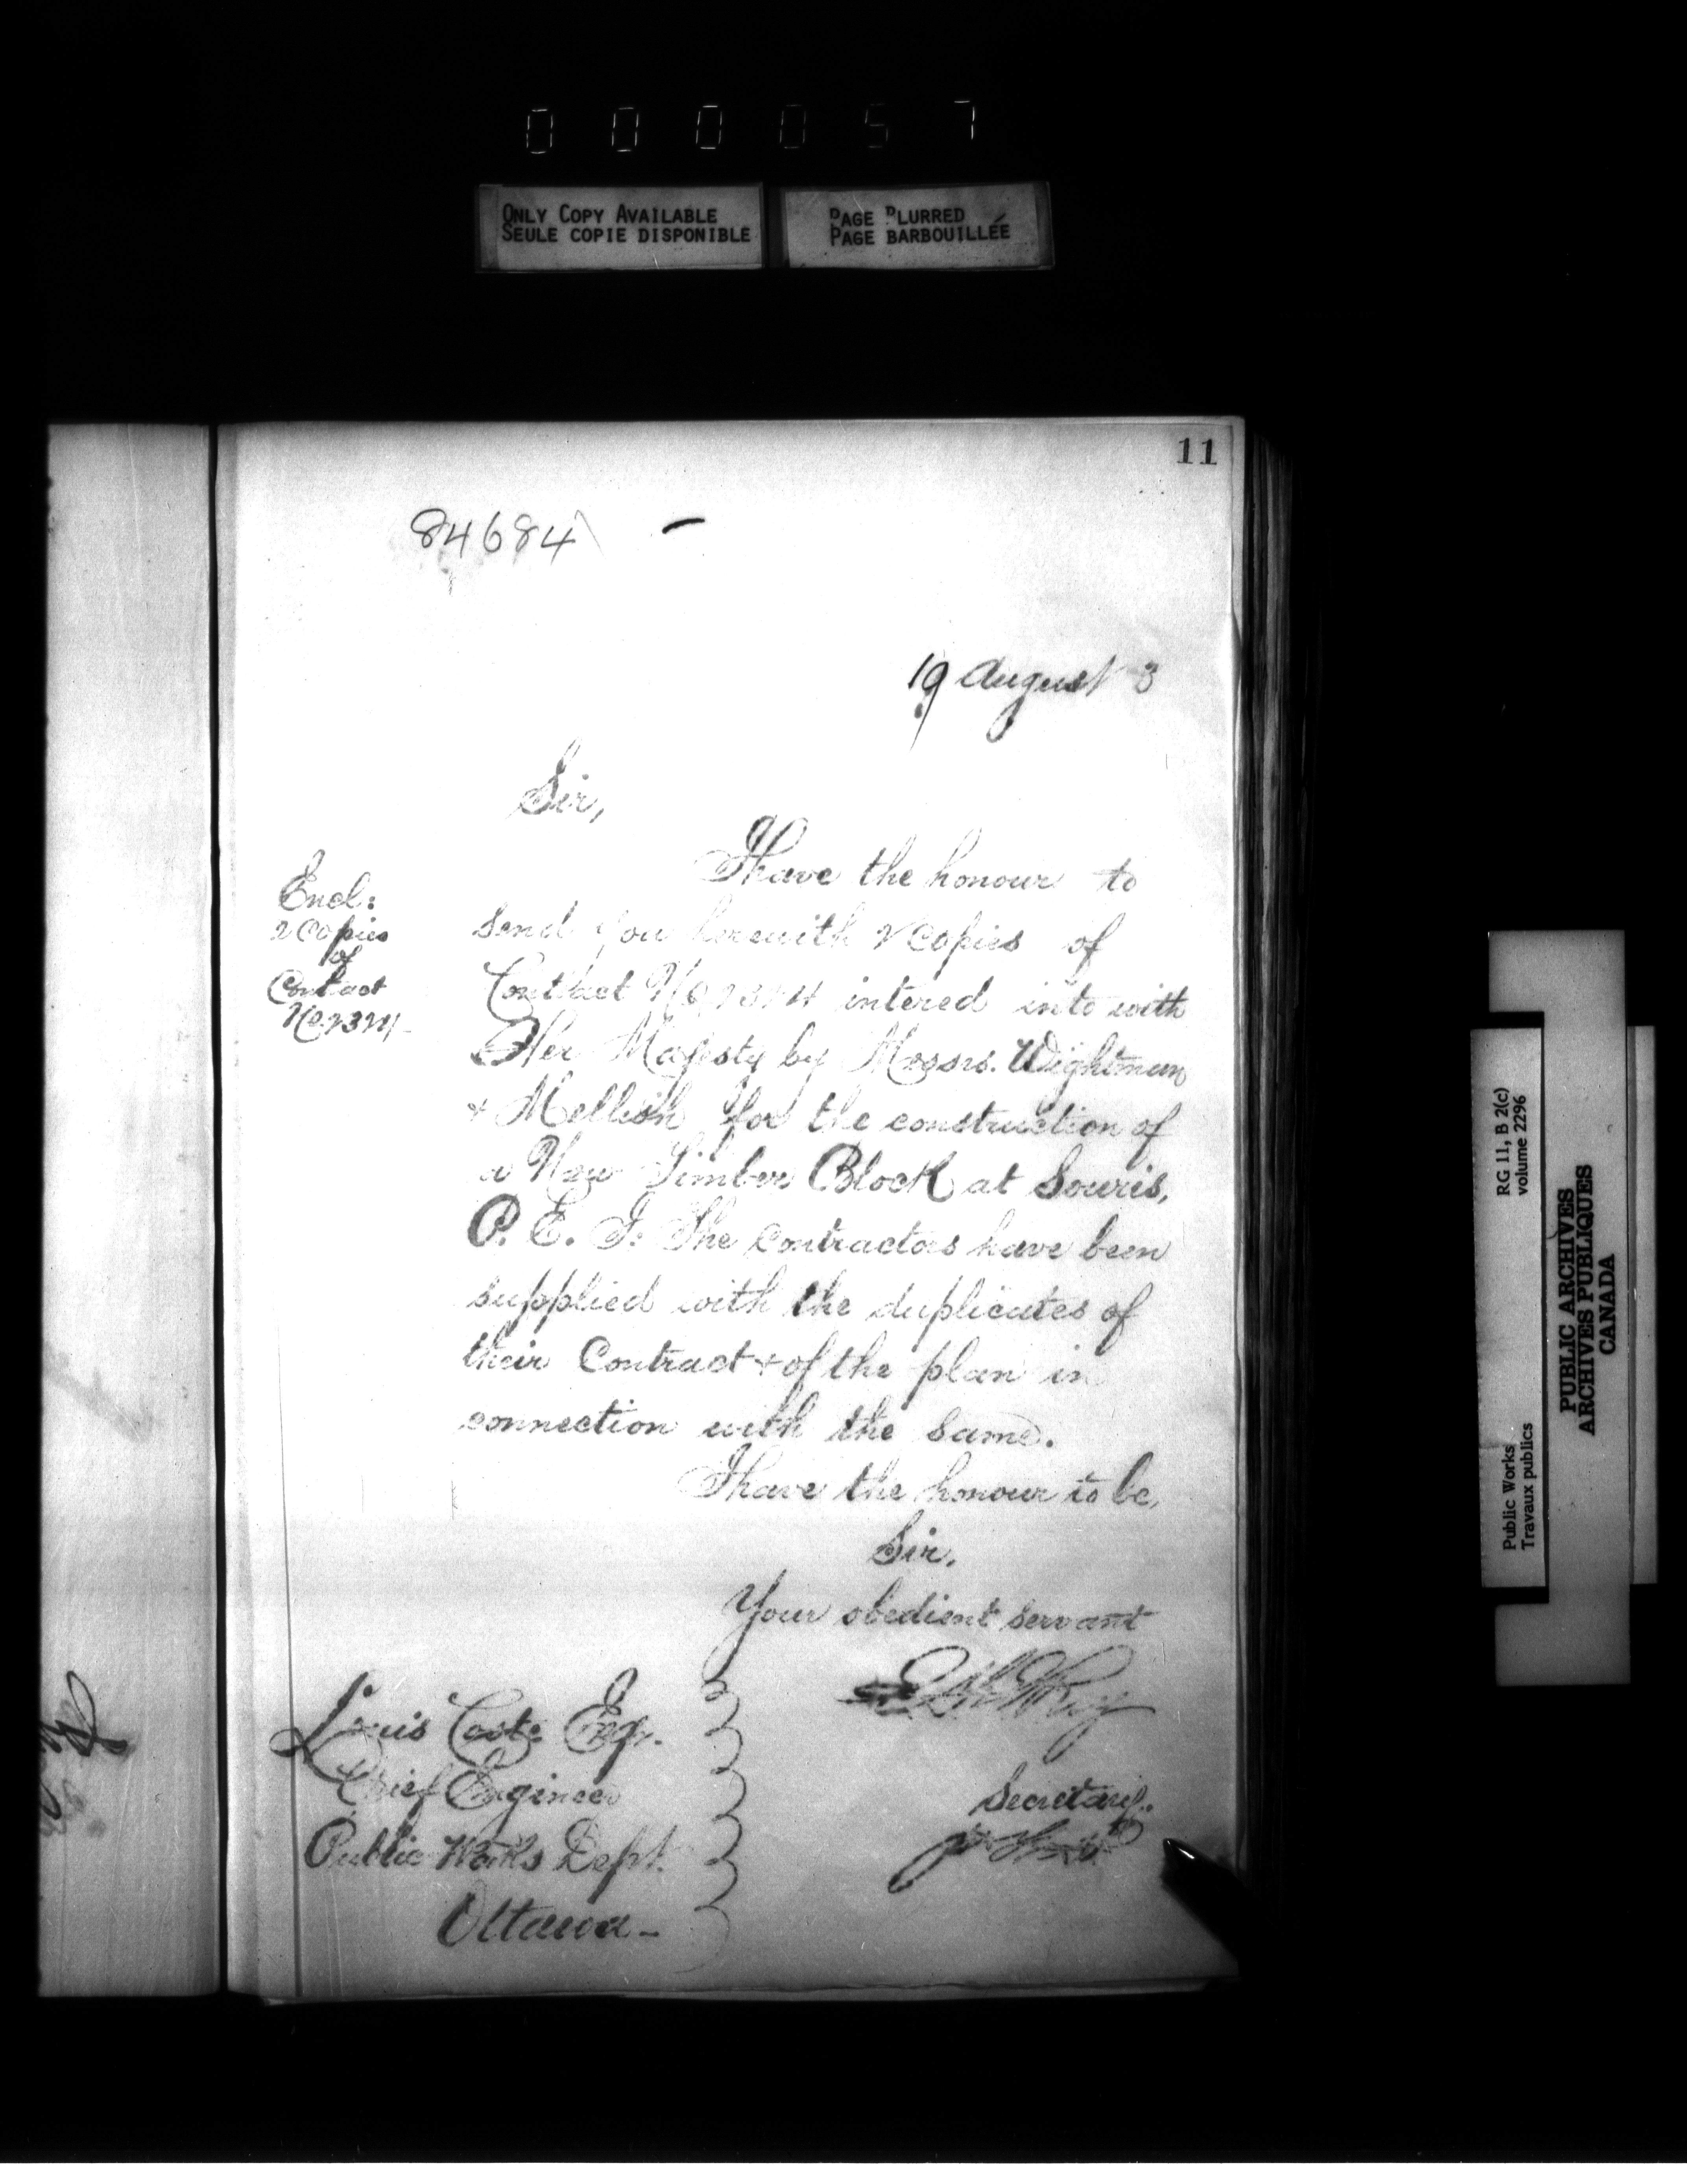 000057
ONLY COPY AVAILABLE
SEULE COPIE DISPONIBLE
PAGE BLURRED
PAGE BARBOUILLÉE
11
84684
19 August 3
Sir,
I have the honour to
send you herewith 2 Copies of
Contract No 2324 intered into with
Her Majesty by Messrs. Wightman
& Mellish for the construction of
a New Timber Block at Souris,
P. E. I. The Contractors have been
supplied with the duplicates of
their Contract & of the plan in
connection with the same.
I have the honour to be,
Sir,
Your obedient servant
Secretary.
Encl:
2 Copies
of
Contract
No 2324
Louis Coste Esqr.
Chief Engineer
Public Works Dept.
Ottawa -
RG 11, B 2(c)
volume 2296
Public Works
Travaux publics
PUBLIC ARCHIVES
ARCHIVES PUBLIQUES
CANADA